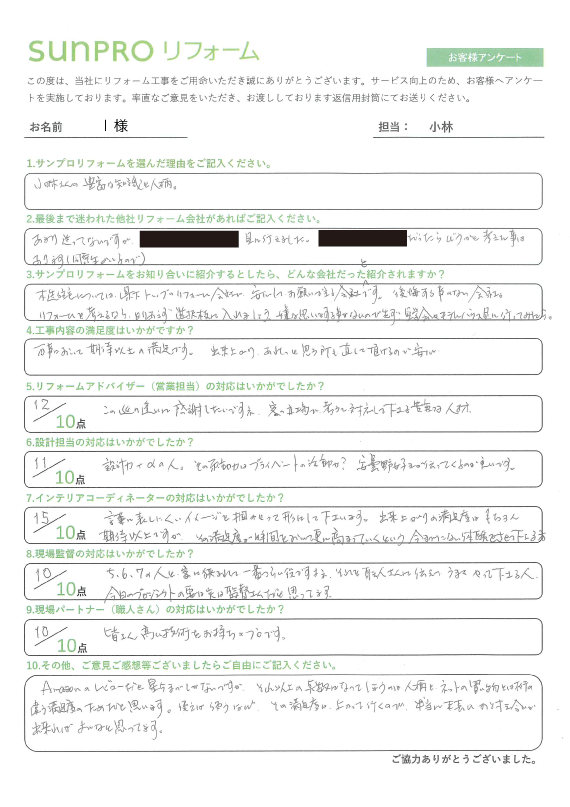 sunPRO リフォーム
お客様アンケート
この度は、当社にリフォーム工事をご用命いただき誠にありがとうございます。サービス向上のため、お客様へアンケー
トを実施しております。率直なご意見をいただき、お渡ししております返信用封筒にてお送りください。
お名前 I 様 担当： 小林
1.サンプロリフォームを選んだ理由をご記入ください。
小林さんの豊富な知識と人柄。
2.最後まで迷われた他社リフォーム会社があればご記入ください。
あまり迷ってないですが 見に行きました。 だったらどうかと考えた事は
あります
3.サンプロリフォームをお知り合いに紹介するとしたら、どんな会社だったと紹介されますか？
木造住宅については、県下トップのリフォーム会社 安心してお願いできる会社です。後悔する事のない会社。
リフォームを考えるなら、とりあえず選択肢に入れましょう
4.工事内容の満足度はいかがですか？
万事において期待以上の満足です。出来上がり、あれっと思う所も直して頂けるので安心
5.リフォームアドバイザー（営業担当）の対応はいかがでしたか？
12/10点 この巡り逢いに感謝したいですネ
6.設計担当の対応はいかがでしたか？
11/10点 設計力+αの人。その原動力はプライベートの活動か？
7.インテリアコーディネーターの対応はいかがでしたか？
15/10点 言葉に表しにくいイメージを掴みとって形にして下さいます。出来上がりの満足度はもちろん
期待以上ですが、その満足度が時間とともに更に高まっていくという
8.現場監督の対応はいかがでしたか？
10/10点 5、6、7の人と
今回のプロジェクトの要は実は監督さんだと思ってます
9.現場パートナー（職人さん）の対応はいかがでしたか？
10/10点 皆さん高い技術をお持ちのプロです。
10.その他、ご意見ご感想等ございましたらご自由にご記入ください。
Amazonのレビューだと星5までしかないですが、それ以上の点数になってしまうのは人柄と、ネットの買い物とは
違う満足度のためだと思います。
出来ればよいなと思ってます。
ご協力ありがとうございました。